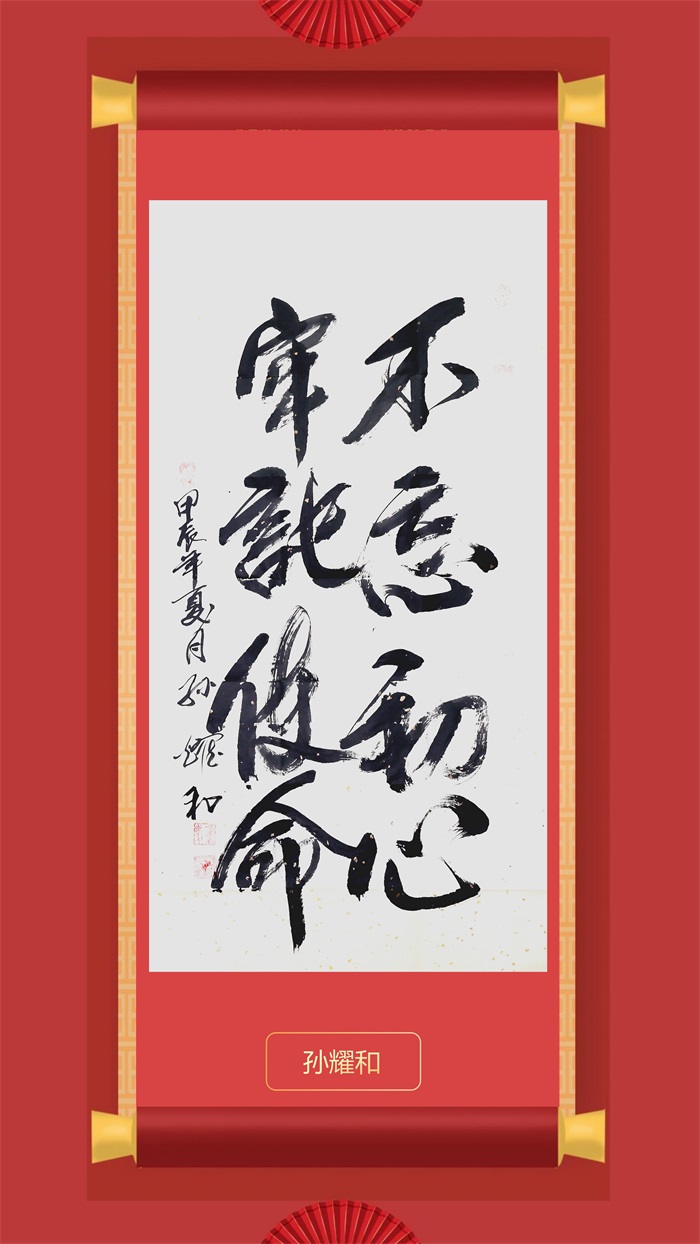 不忘初心
牢記使命
甲辰年夏月孙耀和
孙耀和